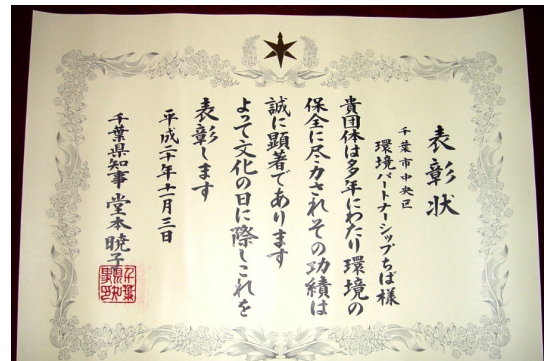 表彰状
千葉市中央区
環境パートナーシップちば様
貴団体は多年にわたり環境の
保全に尽力されその功績は
誠に顕著であります
よって文化の日に際しこれを
表彰します
平成二十年十一月三日
千葉県知事 堂本暁子
千葉県知事之印